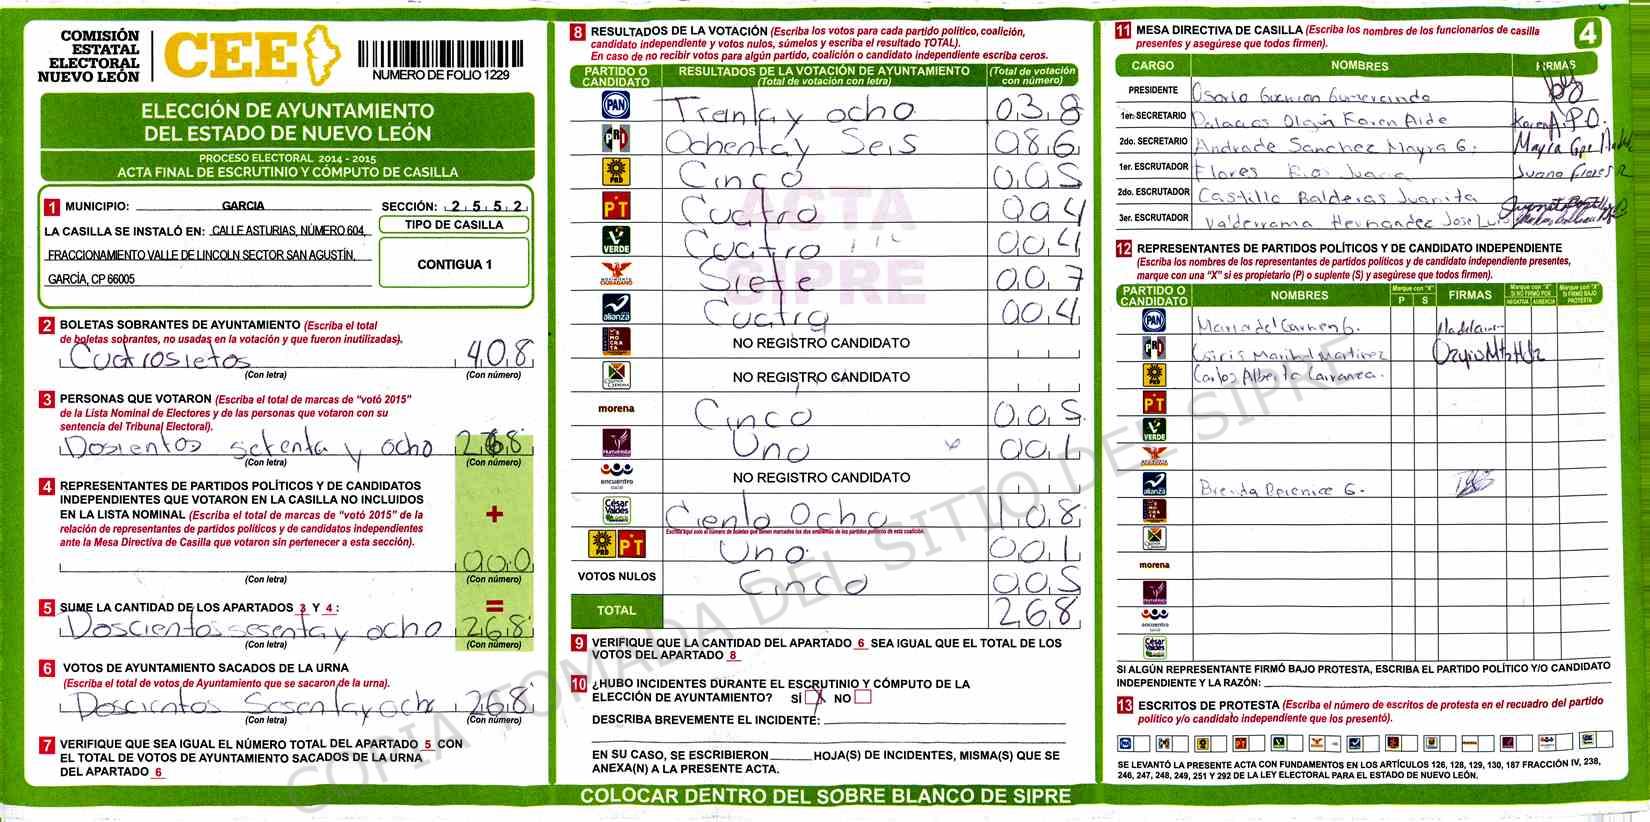 COMISIÓN
ESTATAL
ELECTORAL
NUEVO LEÓN
CEE
NUMERO DE FOLIO 1229
ELECCIÓN DE AYUNTAMIENTO
DEL ESTADO DE NUEVO LEÓN
PROCESO ELECTORAL 2014 - 2015
ACTA FINAL DE ESCRUTINIO Y CÓMPUTO DE CASILLA
1 MUNICIPIO: GARCIA SECCIÓN: 2 5 5 2
LA CASILLA SE INSTALÓ EN: CALLE ASTURIAS, NÚMERO 604,
FRACCIONAMIENTO VALLE DE LINCOLN SECTOR SAN AGUSTÍN,
GARCÍA, CP 66005
TIPO DE CASILLA
CONTIGUA 1
2 BOLETAS SOBRANTES DE AYUNTAMIENTO (Escriba el total
de boletas sobrantes, no usadas en la votación y que fueron inutilizadas).
Cuatrosietos 408
(Con letra) (Con número)
3 PERSONAS QUE VOTARON (Escriba el total de marcas de "votó 2015"
de la Lista Nominal de Electores y de las personas que votaron con su
sentencia del Tribunal Electoral).
Dosientos setenta y ocho 268
(Con letra) (Con número)
4 REPRESENTANTES DE PARTIDOS POLÍTICOS Y DE CANDIDATOS
INDEPENDIENTES QUE VOTARON EN LA CASILLA NO INCLUIDOS
EN LA LISTA NOMINAL (Escriba el total de marcas de "votó 2015" de la
relación de representantes de partidos políticos y de candidatos independientes
ante la Mesa Directiva de Casilla que votaron sin pertenecer a esta sección).
+
000
(Con letra) (Con número)
=
5 SUME LA CANTIDAD DE LOS APARTADOS 3 Y 4 :
Doscientos sesenta y ocho 268
(Con letra) (Con número)
6 VOTOS DE AYUNTAMIENTO SACADOS DE LA URNA
(Escriba el total de votos de Ayuntamiento que se sacaron de la urna).
Doscientos Sesenta y ocho 268
(Con letra) (Con número)
7 VERIFIQUE QUE SEA IGUAL EL NÚMERO TOTAL DEL APARTADO 5 CON
EL TOTAL DE VOTOS DE AYUNTAMIENTO SACADOS DE LA URNA
DEL APARTADO 6
8 RESULTADOS DE LA VOTACIÓN (Escriba los votos para cada partido político, coalición,
candidato independiente y votos nulos, súmelos y escriba el resultado TOTAL).
En caso de no recibir votos para algún partido, coalición o candidato independiente escriba ceros.
PARTIDO O CANDIDATO RESULTADOS DE LA VOTACIÓN DE AYUNTAMIENTO (Total de votación con letra) (Total de votación con número)
PAN Trenta y ocho 038
PRI Ochenta y Seis 086
PRD Cinco 005
PT Cuatro 004
VERDE Cuatro 004
MOVIMIENTO CIUDADANO Siete 007
alianza Cuatro 004
NO REGISTRO CANDIDATO
NO REGISTRO CANDIDATO
morena Cinco 005
Humanista Uno 001
encuentro social NO REGISTRO CANDIDATO
César Valdés Ciento Ocho 108
Escriba aquí solo el número de boletas que tienen marcados los dos emblemas de los partidos políticos de esta coalición.
PRD PT Uno 001
VOTOS NULOS Cinco 005
TOTAL 268
ACTA
SIPRE
9 VERIFIQUE QUE LA CANTIDAD DEL APARTADO 6 SEA IGUAL QUE EL TOTAL DE LOS
VOTOS DEL APARTADO 8
10 ¿HUBO INCIDENTES DURANTE EL ESCRUTINIO Y CÓMPUTO DE LA
ELECCIÓN DE AYUNTAMIENTO? SÍ X NO
DESCRIBA BREVEMENTE EL INCIDENTE:
EN SU CASO, SE ESCRIBIERON HOJA(S) DE INCIDENTES, MISMA(S) QUE SE
ANEXA(N) A LA PRESENTE ACTA.
COLOCAR DENTRO DEL SOBRE BLANCO DE SIPRE
4
11 MESA DIRECTIVA DE CASILLA (Escriba los nombres de los funcionarios de casilla
presentes y asegúrese que todos firmen).
CARGO NOMBRES FIRMAS
PRESIDENTE Osorio Guzman Gumercindo
1er. SECRETARIO Palacios Olguin Karen Aide Karen A.P.O.
2do. SECRETARIO Andrade Sanchez Mayra G. Mayra Gpe
1er. ESCRUTADOR Flores Rios Juana Juana Flores R
2do. ESCRUTADOR Castillo Balderas Juanita
3er. ESCRUTADOR Valderrama Hernandez Jose Luis
12 REPRESENTANTES DE PARTIDOS POLÍTICOS Y DE CANDIDATO INDEPENDIENTE
(Escriba los nombres de los representantes de partidos políticos y de candidato independiente presentes,
marque con una "X" si es propietario (P) o suplente (S) y asegúrese que todos firmen).
PARTIDO O CANDIDATO NOMBRES Marque con "X" P S FIRMAS Marque con "X" SI NO FIRMÓ POR NEGATIVA AUSENCIA Marque con "X" SI FIRMÓ BAJO PROTESTA
PAN Maria del Carmen G.
PRI Osiris Maribel Martinez
PRD Carlos Alberto Carranza.
PT
VERDE
alianza Brenda Berenice G.
morena
encuentro social
César Valdés
SI ALGÚN REPRESENTANTE FIRMÓ BAJO PROTESTA, ESCRIBA EL PARTIDO POLÍTICO Y/O CANDIDATO
INDEPENDIENTE Y LA RAZÓN:
13 ESCRITOS DE PROTESTA (Escriba el número de escritos de protesta en el recuadro del partido
político y/o candidato independiente que los presentó).
SE LEVANTÓ LA PRESENTE ACTA CON FUNDAMENTOS EN LOS ARTÍCULOS 126, 128, 129, 130, 187 FRACCIÓN IV, 238,
246, 247, 248, 249, 251 Y 292 DE LA LEY ELECTORAL PARA EL ESTADO DE NUEVO LEÓN.
COPIA TOMADA DEL SITIO DEL SIPRE